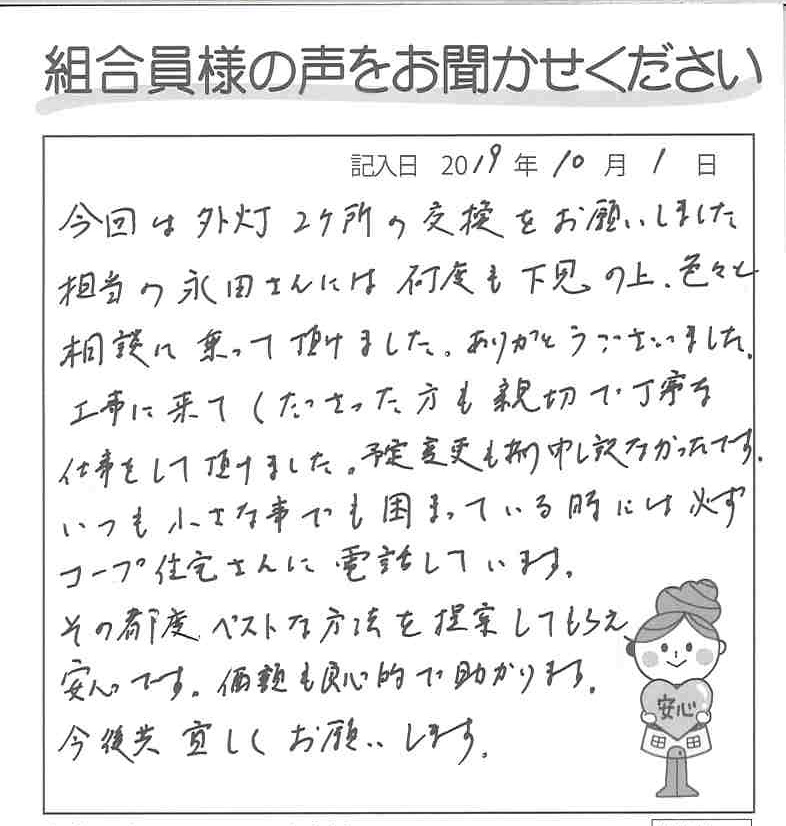 組合員様の声をお聞かせください
記入日 2019年 10月 1日
今回は外灯2ケ所の交換をお願いしました
担当の永田さんには何度も下見の上、色々と
相談に乗って頂けました。ありがとうございました。
工事に来てくださった方も親切で丁寧な
仕事をして頂けました。予定変更も有り申し訳なかったです。
いつも小さな事でも困まっている時には必ず
コープ住宅さんに電話しています。
その都度、ベストな方法を提案してもらえ
安心です。価額も良心的で助かります。
今後共宜しくお願いします。
安心